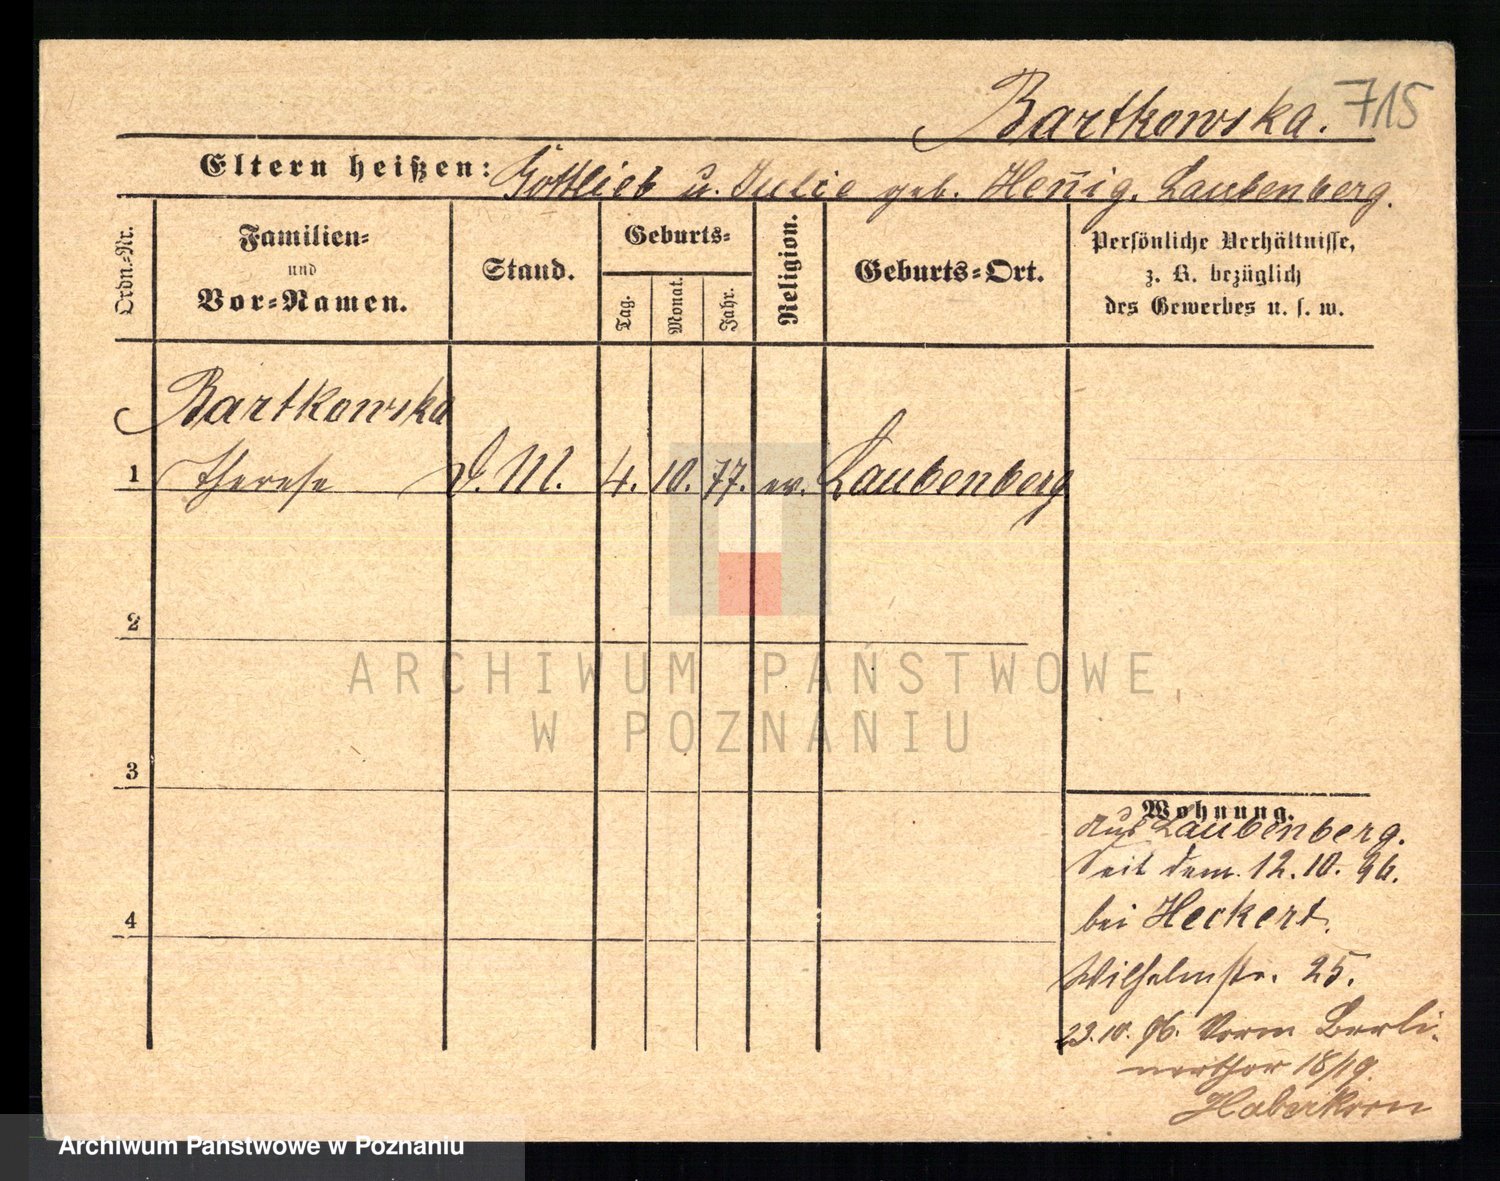 Bartkowska. 715
Eltern heißen: Gottlieb u. Julie geb. Hen̄ig. Laubenberg.
Ordn.-Nr.
Familien-
und
Vor-Namen.
Stand.
Geburts-
Tag.
Monat.
Jahr.
Religion.
Geburts-Ort.
Persönliche Verhältnisse,
z. B. bezüglich
des Gewerbes u. s. w.
Bartkowska
1 Therese D. M. 4. 10. 77. ev. Laubenberg
2
3
4
Wohnung.
Aus Laubenberg.
Seit dem 12.10.96.
bei Heckert.
Wilhelmstr. 25.
23.10.96. Vorm Berli-
nerthor 18/19.
Haberkorn
ARCHIWUM PAŃSTWOWE,
W POZNANIU
Archiwum Państwowe w Poznaniu